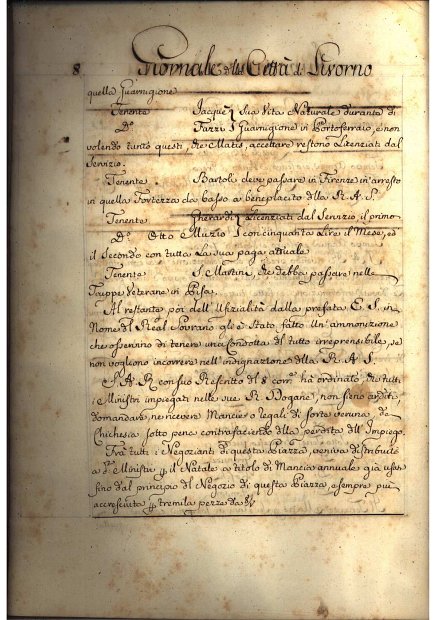 8 Giornale della Città di Livorno
quella Guarnigione
Tenente Jacque Sua Vita Naturale durante di
Do. Tuzzi Guarnigione in Portoferraio, e non
volendo tanto questi, che Matis, accettare restono Licenziati dal
Servizio.
Tenente Bartoli deve passare in Firenze in arresto
in quella Fortezza da basso a beneplacito della R. A. S.
Tenente Gherardi Licenziati dal Servizio il primo
Do. Otto Muzio con cinquanta Lire il Mese, ed
il Secondo con tutta La sua paga attuale
Tenente S. Martini, che debba passare nelle
Truppe Veterane in Pisa.
Al restante poi dell' Ufizialità dalla prefata E. S. in
Nome del Real Sovrano gli è Stato fatto Un' ammonizione
che ossennino di tenere una Condotta del tutto irreprensibile, se
non vogliono incorrere nell' indignazione della R. A. S.
S. A. R. con suo Rescritto del 8 corre. ha ordinato, che tutti
i Ministri impiegati nelle sue R. Dogane, non sieno arditi
domandare, ne ricevere Mancie o regali di sorte veruna da
Chichesia sotto pena contrafacendo della perdita dell' Impiego.
Tra tutti i Negozianti di questa Piazza, veniva distribuito
a di. Ministri p. il Natale a titolo di Mancia annuale già uso
fino dal principio del Negozio di questa Piazza, e sempre più
accresciuta p. tremila pezze da 8/r